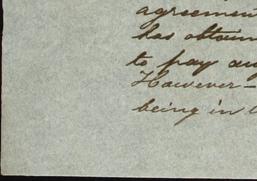 agreemen
has obtain
to pay any
However—
being in